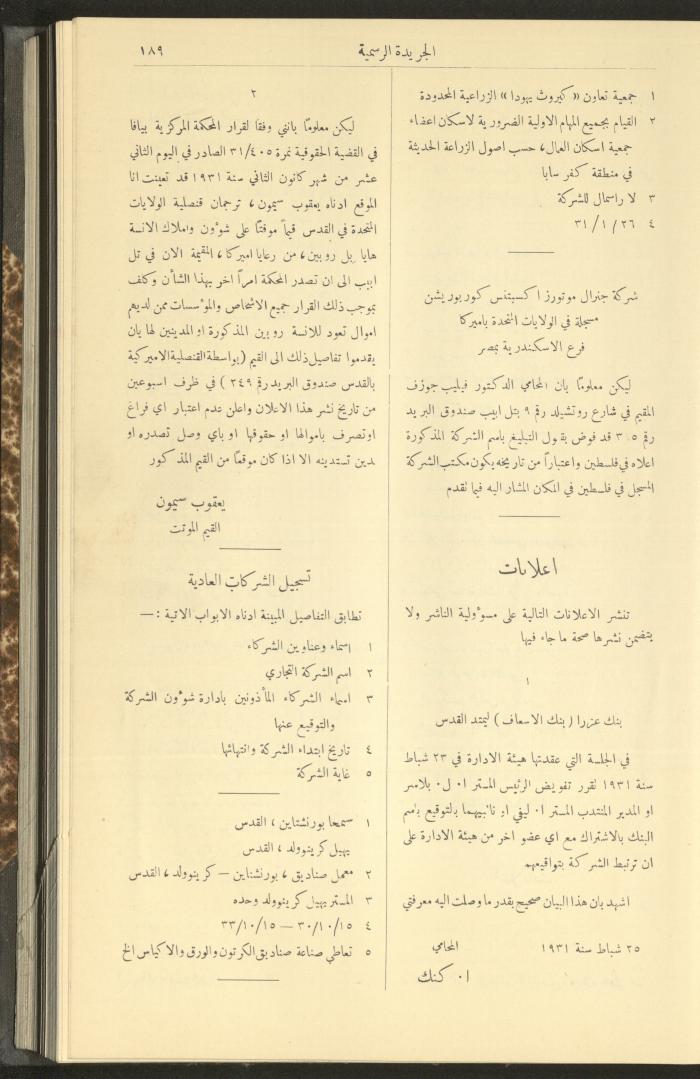 الجريدة الرسمية
١٨٩
١ جمعية تعاون «كيروث يهودا» الزراعية المحدودة
٢ القيام بجميع المهام الاولية الضرورية لاسكان اعضاء
جمعية اسكان العمال، حسب اصول الزراعة الحديثة
في منطقة كفر سابا
٣ لا راسمال للشركة
٤ ٣١/١/٢٦
شركة جنرال موتورز اكسبتنس كوربوريشن
مسجلة في الولايات المتحدة باميركا
فرع الاسكندرية بمصر
ليكن معلومًا بان المحامي الدكتور فيليب جوزف
المقيم في شارع روتشيلد رقم ٩ بتل ابيب صندوق البريد
رقم ٣٠٥ قد فوض بقبول التبليغ باسم الشركة المذكورة
اعلاه في فلسطين واعتبارًا من تاريخه يكون مكتب الشركة
المسجل في فلسطين في المكان المشار اليه فيما تقدم
اعلانات
تنشر الاعلانات التالية على مسؤولية الناشر ولا
يتضمن نشرها صحة ما جاء فيها
١
بنك عزرا (بنك الاسعاف) ليمتد القدس
في الجلسة التي عقدتها هيئة الادارة في ٢٣ شباط
سنة ١٩٣١ تقرر تفويض الرئيس المستر ا. ل. بلامر
او المدير المنتدب المستر ا. ليفي او نائبيهما بالتوقيع باسم
البنك بالاشتراك مع اي عضو اخر من هيئة الادارة على
ان ترتبط الشركة بتواقيعهم
اشهد بان هذا البيان صحيح بقدر ما وصلت اليه معرفتي
٢٥ شباط سنة ١٩٣١ المحامي
ا. كنك
٢
ليكن معلومًا بانني وفقًا لقرار المحكمة المركزية بيافا
في القضية الحقوقية نمرة ٣١/٤٠٥ الصادر في اليوم الثاني
عشر من شهر كانون الثاني سنة ١٩٣١ قد تعينت انا
الموقع ادناه يعقوب سيمون، ترجمان قنصلية الولايات
المتحدة في القدس قيمًا موقتًا على شؤون واملاك الانسة
هايا بل روبين، من رعايا اميركا، المقيمة الان في تل
ابيب الى ان تصدر المحكمة امرًا اخر بهذا الشأن وكلف
بموجب ذلك القرار جميع الاشخاص والمؤسسات ممن لديهم
اموال تعود للانسة روبين المذكورة او المدينين لها بان
يقدموا تفاصيل ذلك الى القيم (بواسطة القنصلية الاميركية
بالقدس صندوق البريد رقم ٢٤٩) في ظرف اسبوعين
من تاريخ نشر هذا الاعلان واعلن عدم اعتبار اي فراغ
او تصرف باموالها او حقوقها او باي وصل تصدره او
لدين تستدينه الا اذا كان موقعًا من القيم المذكور
يعقوب سيمون
القيم الموقت
تسجيل الشركات العادية
تطابق التفاصيل المبينة ادناه الابواب الاتية :—
١ اسماء وعناوين الشركاء
٢ اسم الشركة التجاري
٣ اسماء الشركاء المأذونين بادارة شؤون الشركة
والتوقيع عنها
٤ تاريخ ابتداء الشركة وانتهائها
٥ غاية الشركة
١ سمحا بورنشتاين، القدس
يهيل كرينوولد، القدس
٢ معمل صناديق، بورنشتاين — كرينوولد، القدس
٣ المستر يهيل كرينوولد وحده
٤ ٣٠/١٠/١٥ — ٣٣/١٠/١٥
٥ تعاطي صناعة صناديق الكرتون والورق والاكياس الخ